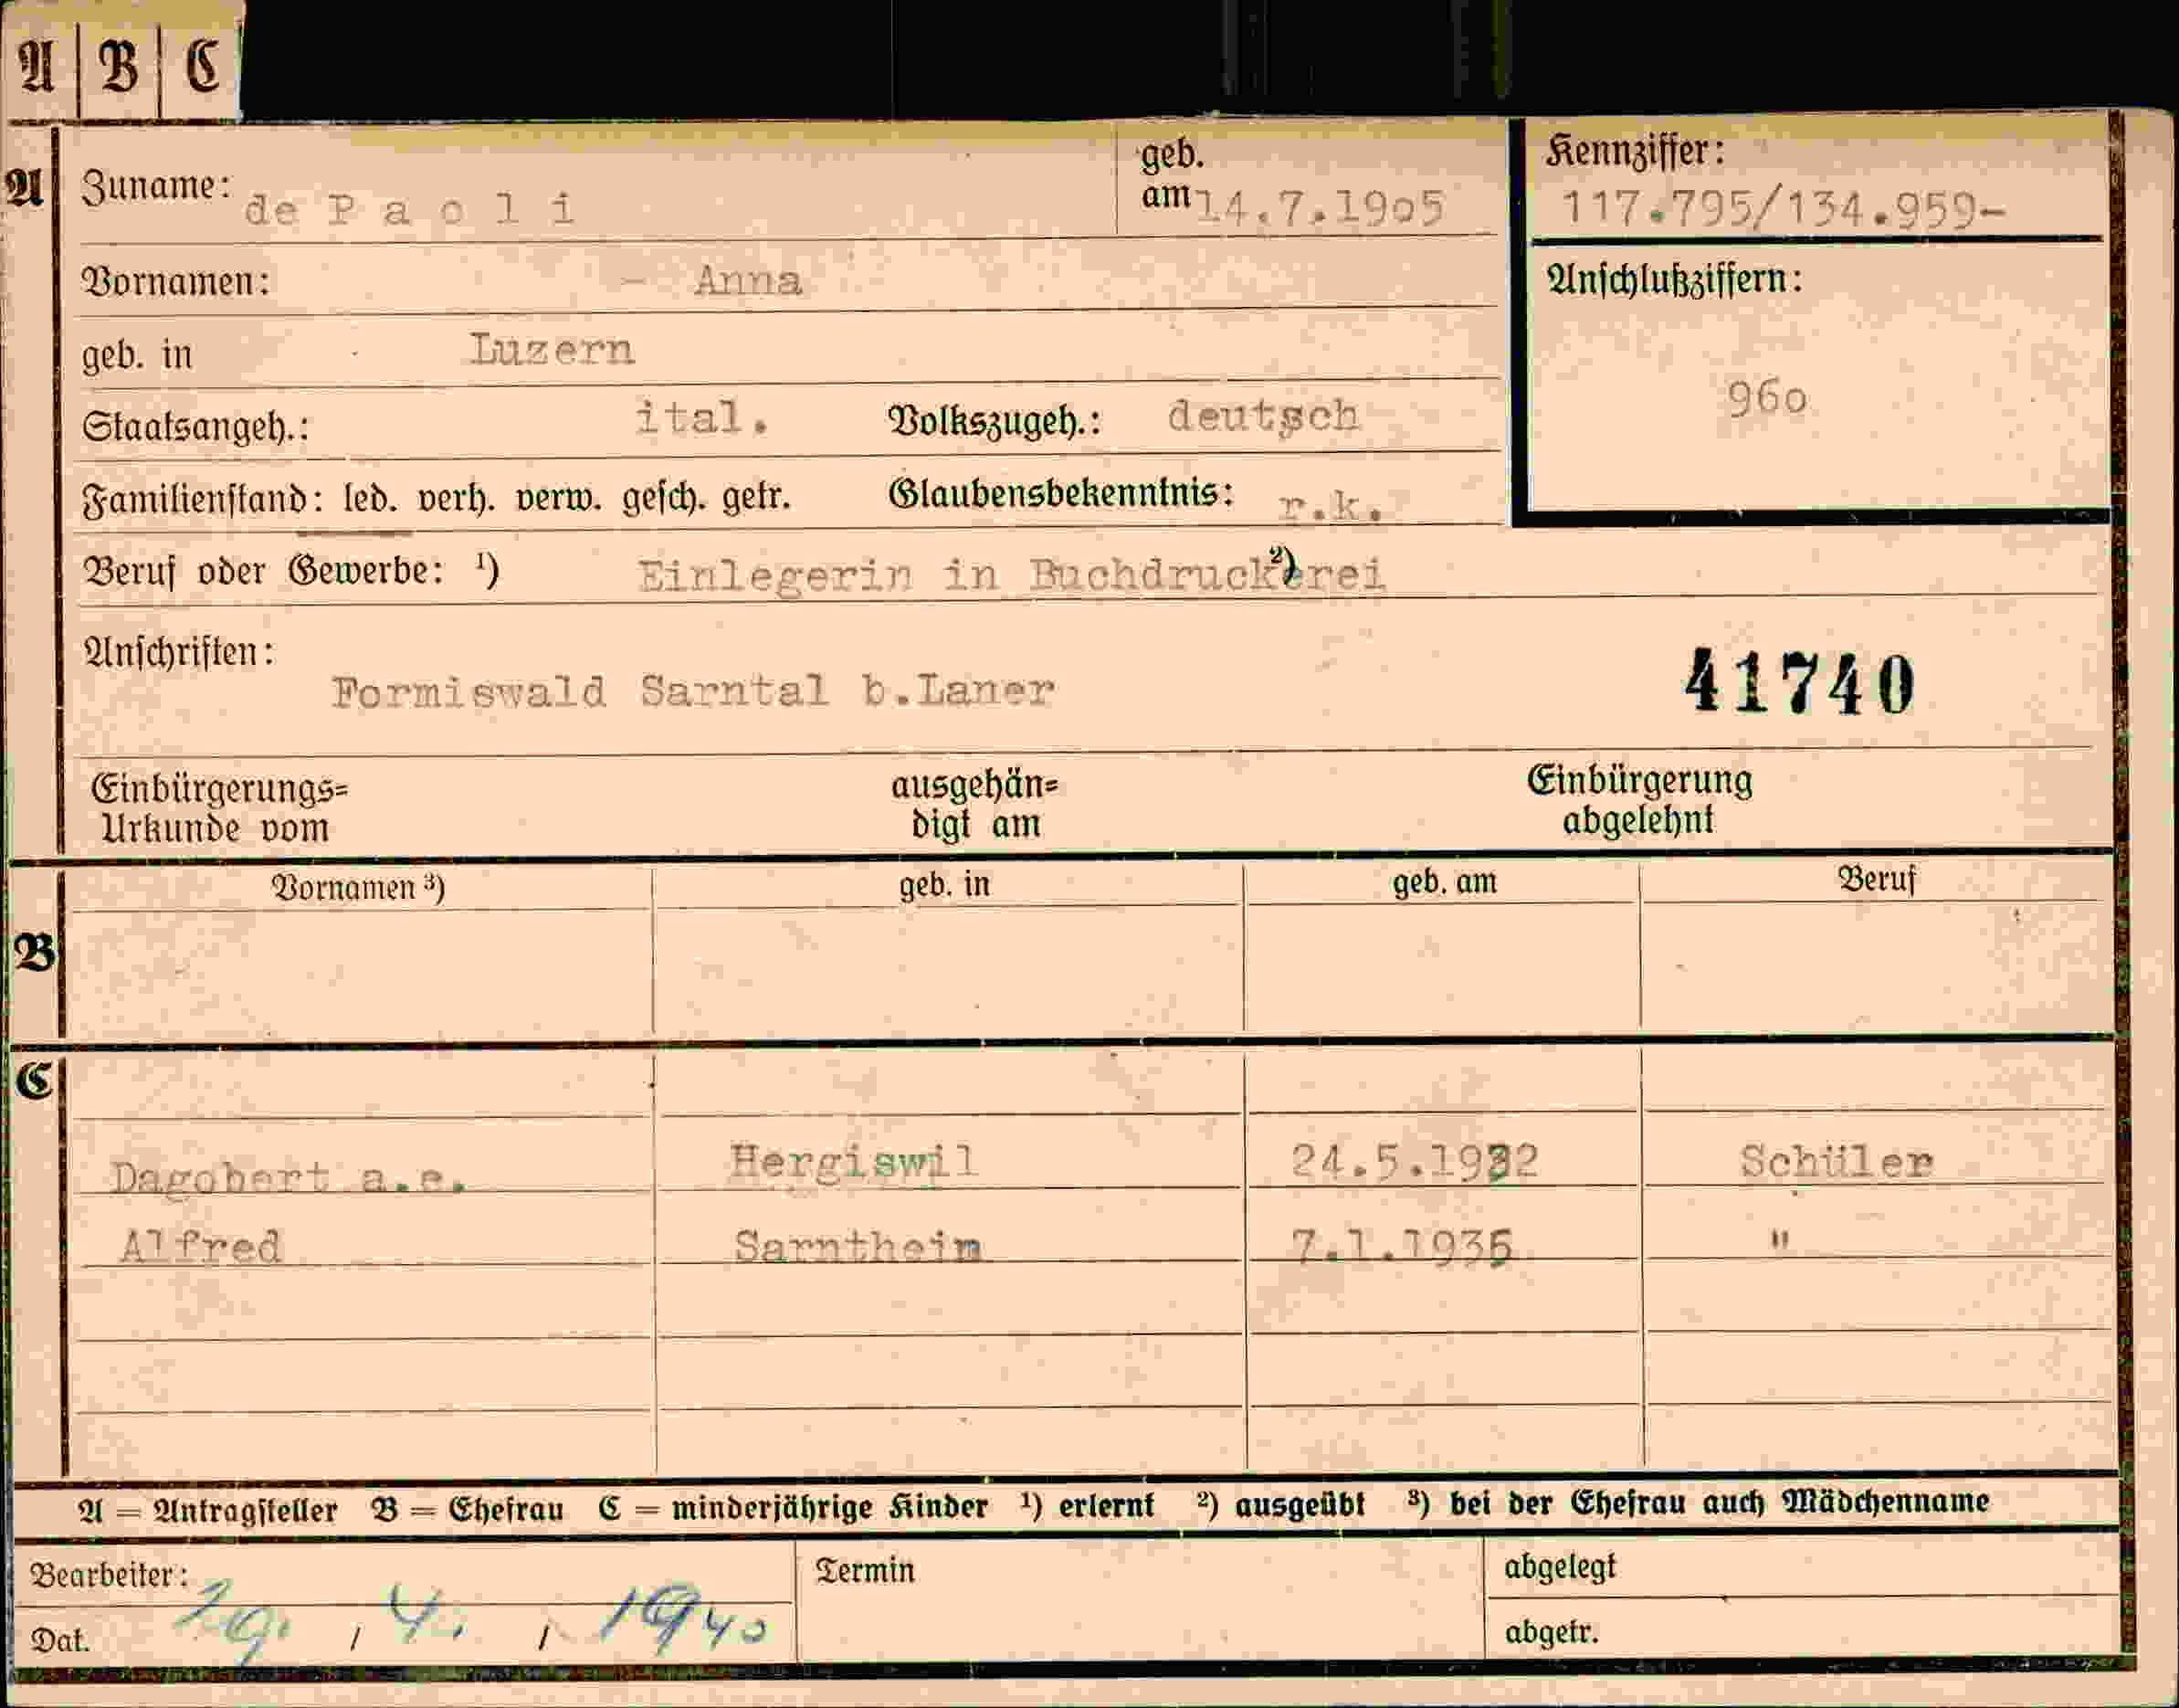 A B C
A Zuname: de P a o l i geb. am 14.7.1905 Kennziffer: 117.795/134.959-
Vornamen: - Anna Anschlußziffern:
geb. in Luzern
960
Staatsangeh.: ital. Volkszugeh.: deutsch
Familienstand: led. verh. verw. gesch. getr. Glaubensbekenntnis: r.k.
Beruf oder Gewerbe: ¹) Einlegerin in Buchdruckerei ²)
Anschriften:
Formiswald Sarntal b.Laner 41740
Einbürgerungs= ausgehän= Einbürgerung
Urkunde vom digt am abgelehnt
Vornamen ³) geb. in geb. am Beruf
B
C
Dagobert a.e. Hergiswil 24.5.1932 Schüler
Alfred Sarnthein 7.1.1935 "
A = Antragsteller B = Ehefrau C = minderjährige Kinder ¹) erlernt ²) ausgeübt ³) bei der Ehefrau auch Mädchenname
Bearbeiter: Termin abgelegt
Dat. 29. / 4. / 1940 abgetr.